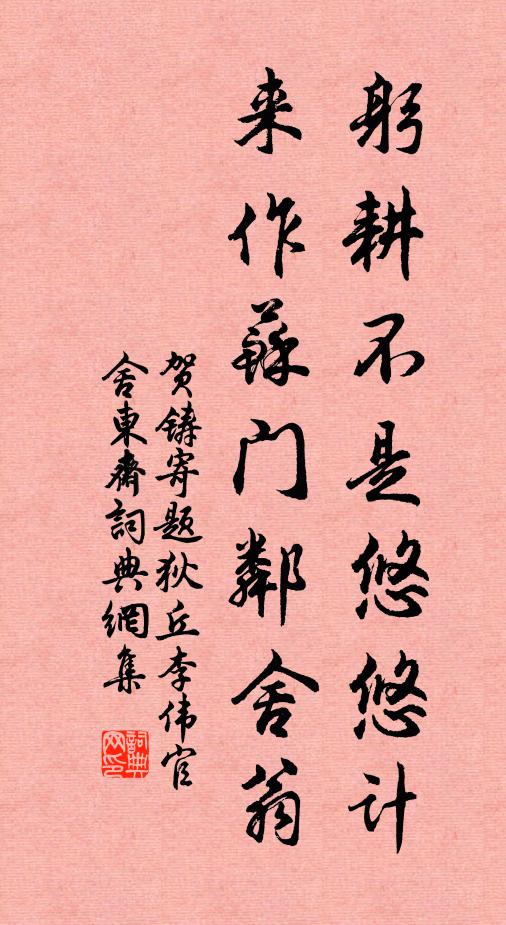 躬耕不是悠悠计
来作蘇门鄰舍翁
贺铸寄题狄丘李伟官
舍東齋詞典網集
詞典网印